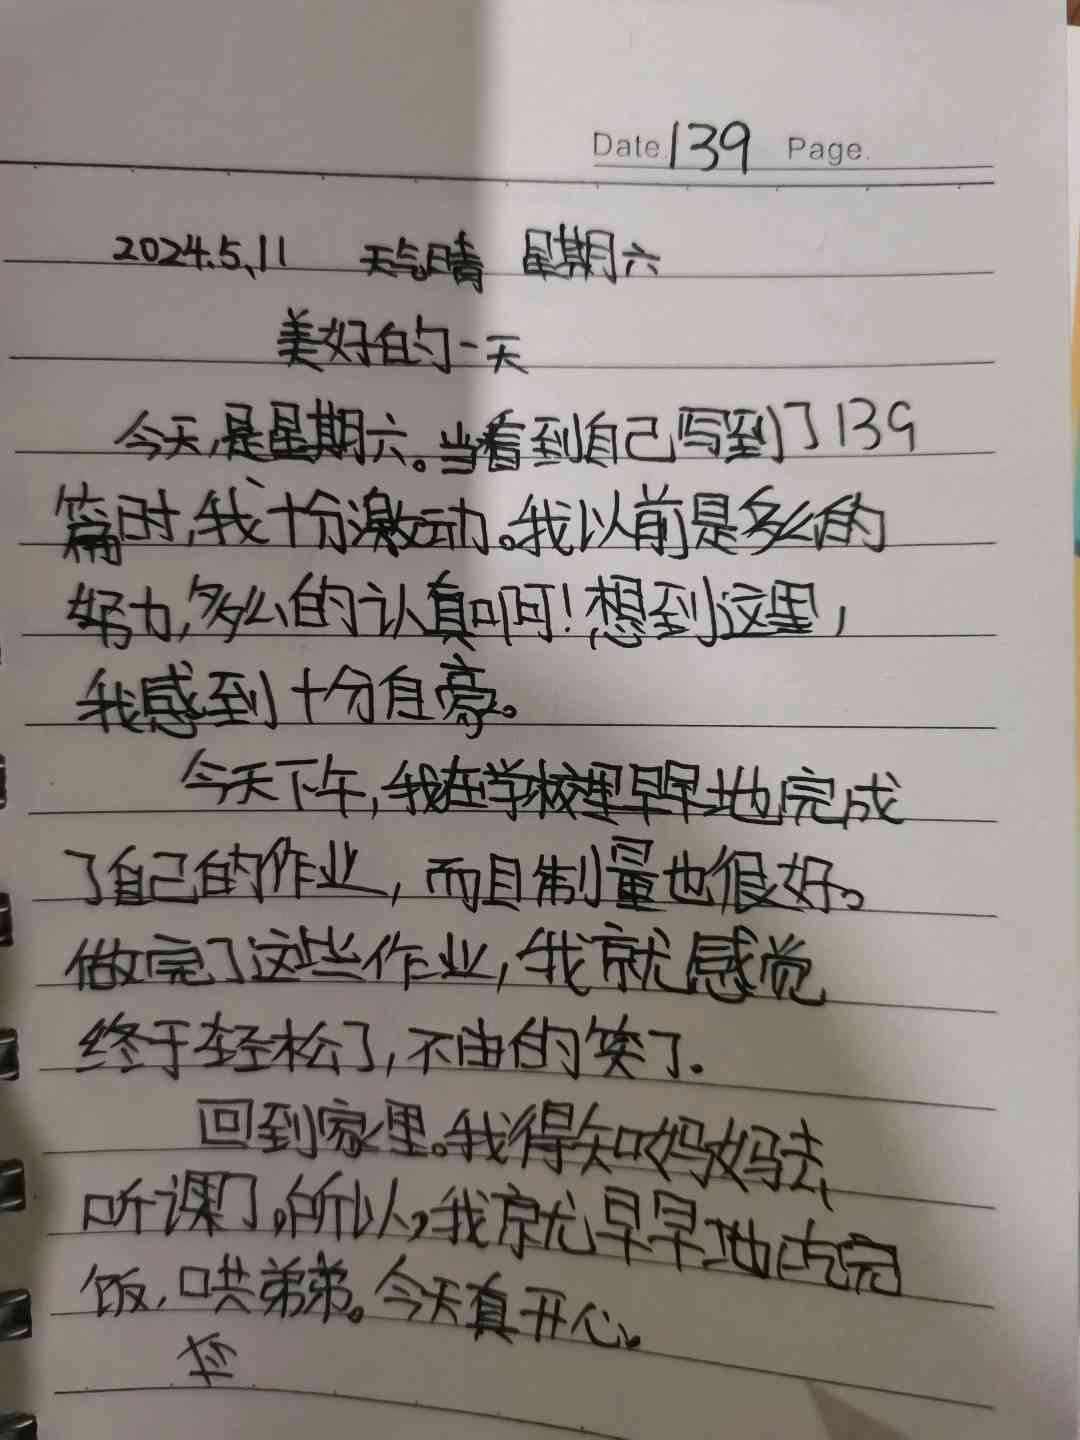 Date. 139 Page.
2024.5.11 天气晴 星期六
美好的一天
今天,是星期六。当看到自己写到了139
篇时,我十分激动。我以前是多么的
努力,多么的认真啊!想到这里,
我感到十分自豪。
今天下午,我在学校里早早地完成
了自己的作业,而且制量也很好。
做完了这些作业,我就感觉
终于轻松了,不由的笑了.
回到家里。我得知妈妈去
听课了。所以,我就早早地吃完
饭,哄弟弟。今天真开心。